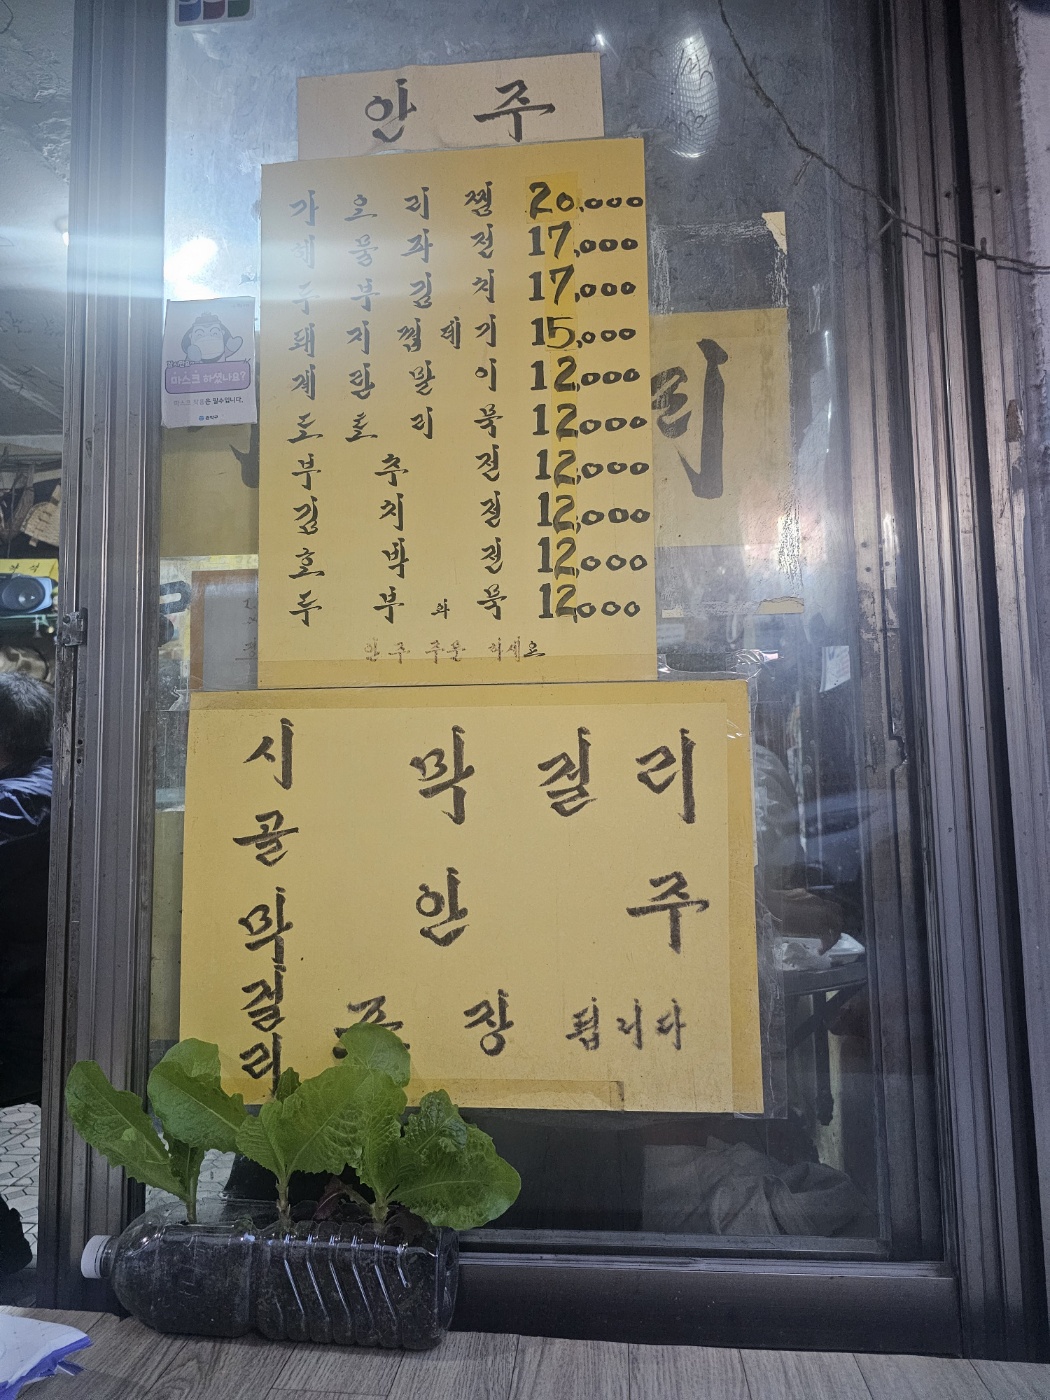 안 주
가 오 리 찜 20,000
해 물 파 전 17,000
두 부 김 치 17,000
돼 지 껍 데 기 15,000
계 란 말 이 12,000
도 토 리 묵 12,000
부 추 전 12,000
김 치 전 12,000
호 박 전 12,000
두 부 와 묵 12,000
안 주 주문 하세요
시골막걸리
막 걸 리
안 주
포 장 됩니다
마스크 하셨나요?
리